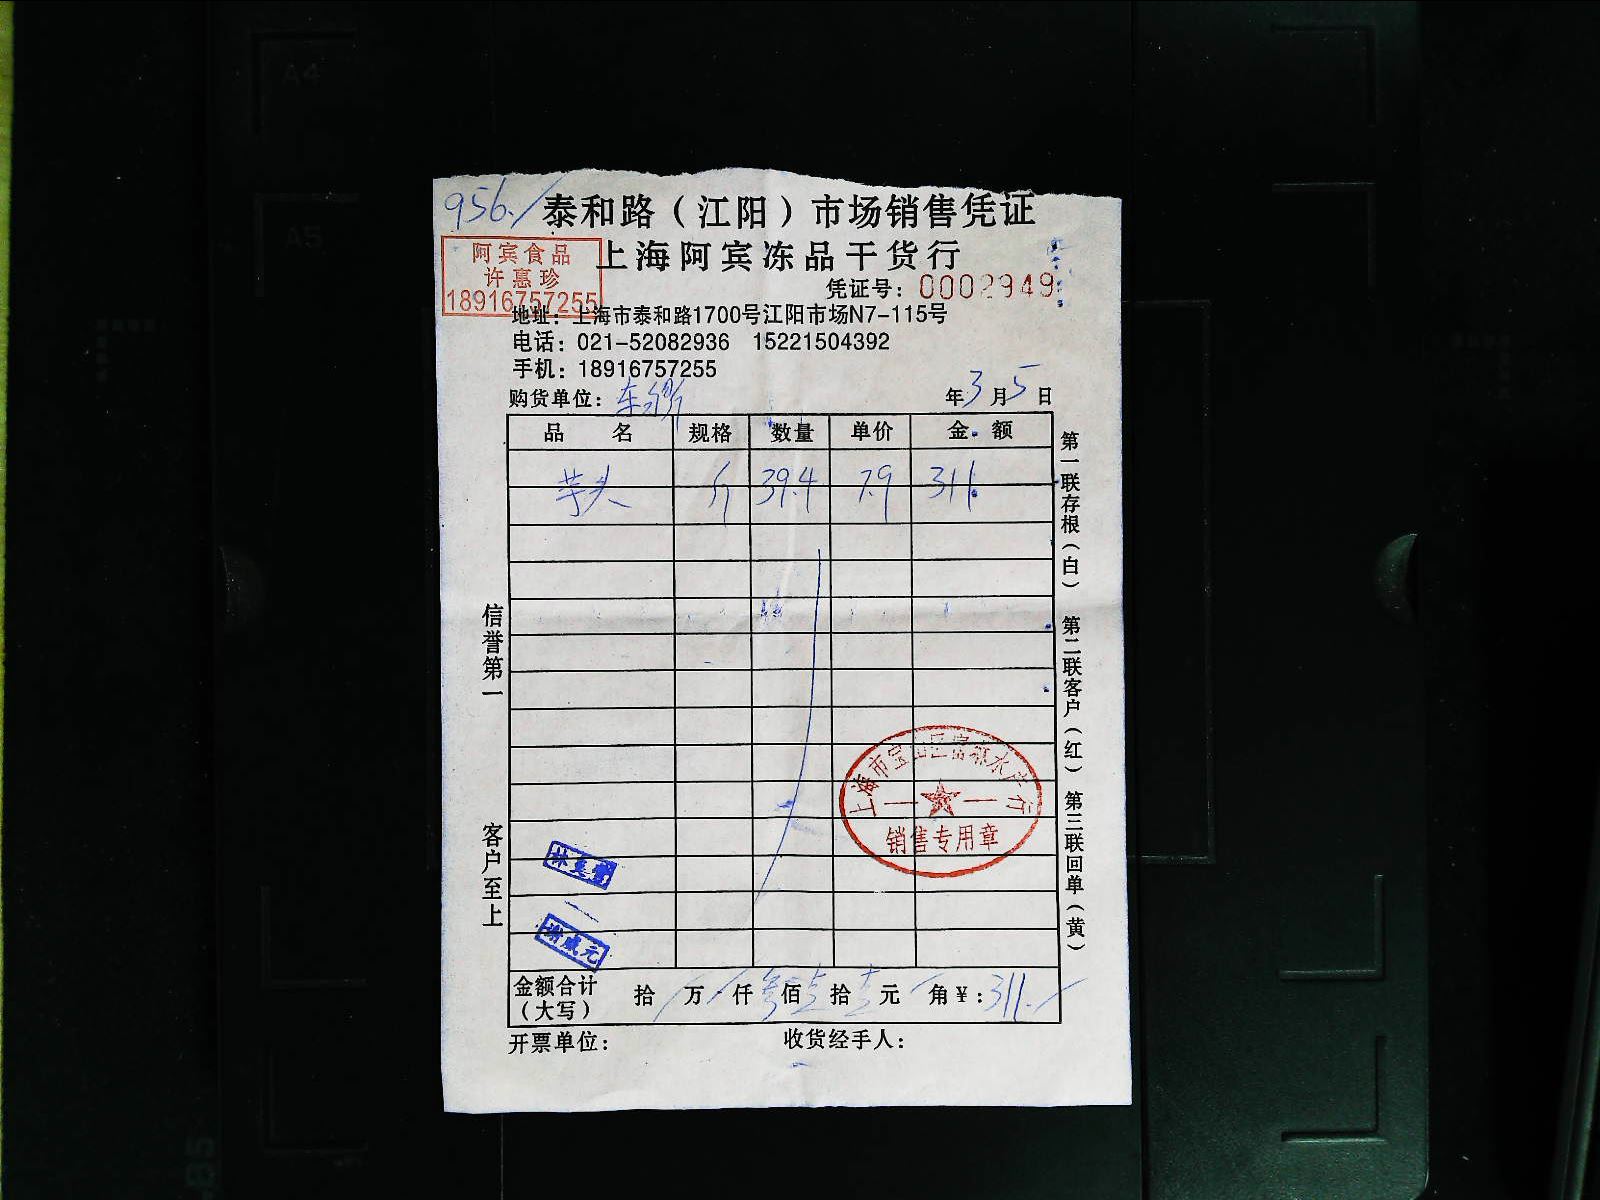 A4
A5
956.
泰和路（江阳）市场销售凭证
上海阿宾冻品干货行
阿宾食品
许惠珍
18916757255
凭证号：0002949
地址：上海市泰和路1700号江阳市场N7-115号
电话：021-52082936 15221504392
手机：18916757255
购货单位：
年3月5日
品 名 规格 数量 单价 金额
芋头 斤 39.4 7.9 311.
第一联存根（白） 第二联客户（红） 第三联回单（黄）
信誉第一
客户至上
上海市宝山区
水产行
销售专用章
谢成元
金额合计（大写） 拾 万 仟 叁佰 壹拾 壹元 角￥：311.
开票单位： 收货经手人：